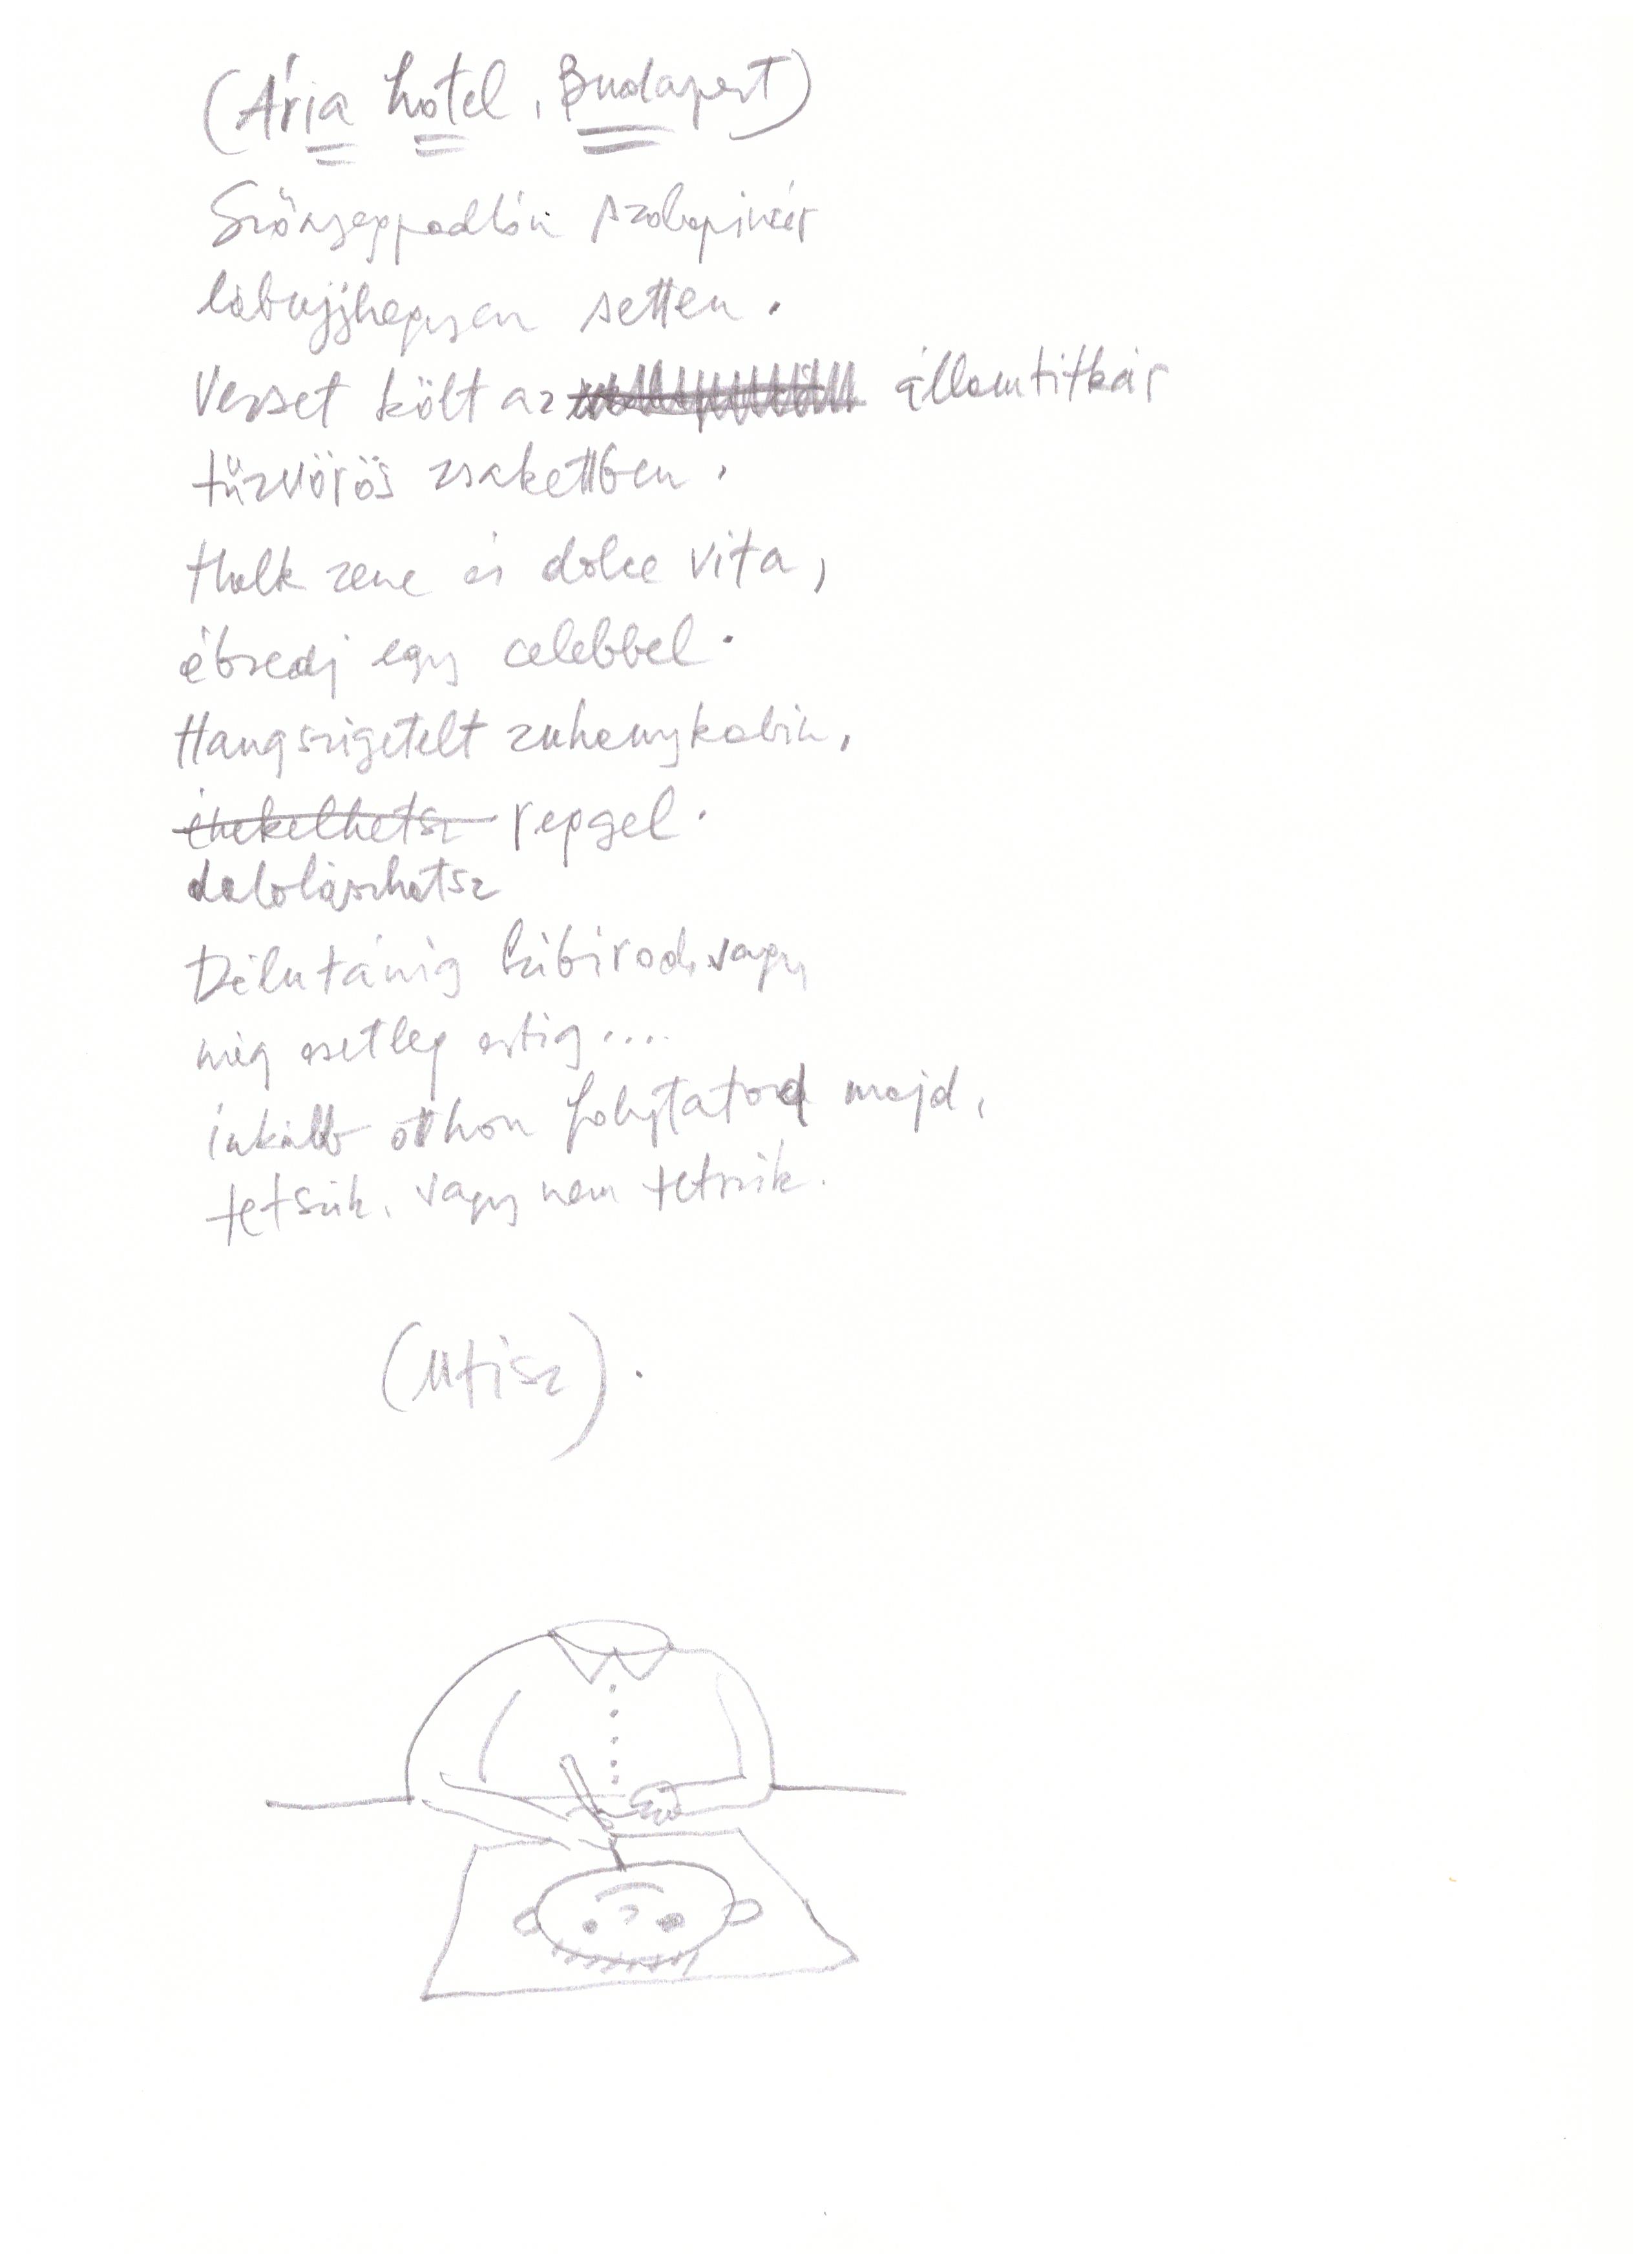 (Ária hotel, Budapest)
Szőnyegpadlón szobapincér
lábujjhegyen setten.
Verset költ az államtitkár
tűzvörös zsakettben.
Halk zene és dolce vita,
ébredj egy celebbel.
Hangszigetelt zuhanykabin,
énekelhetsz reggel.
dalolászhatsz
Délutánig kibírod, vagy
még esetleg estig....
inkább otthon folytatod majd,
tetszik, vagy nem tetszik.
(Utisz).